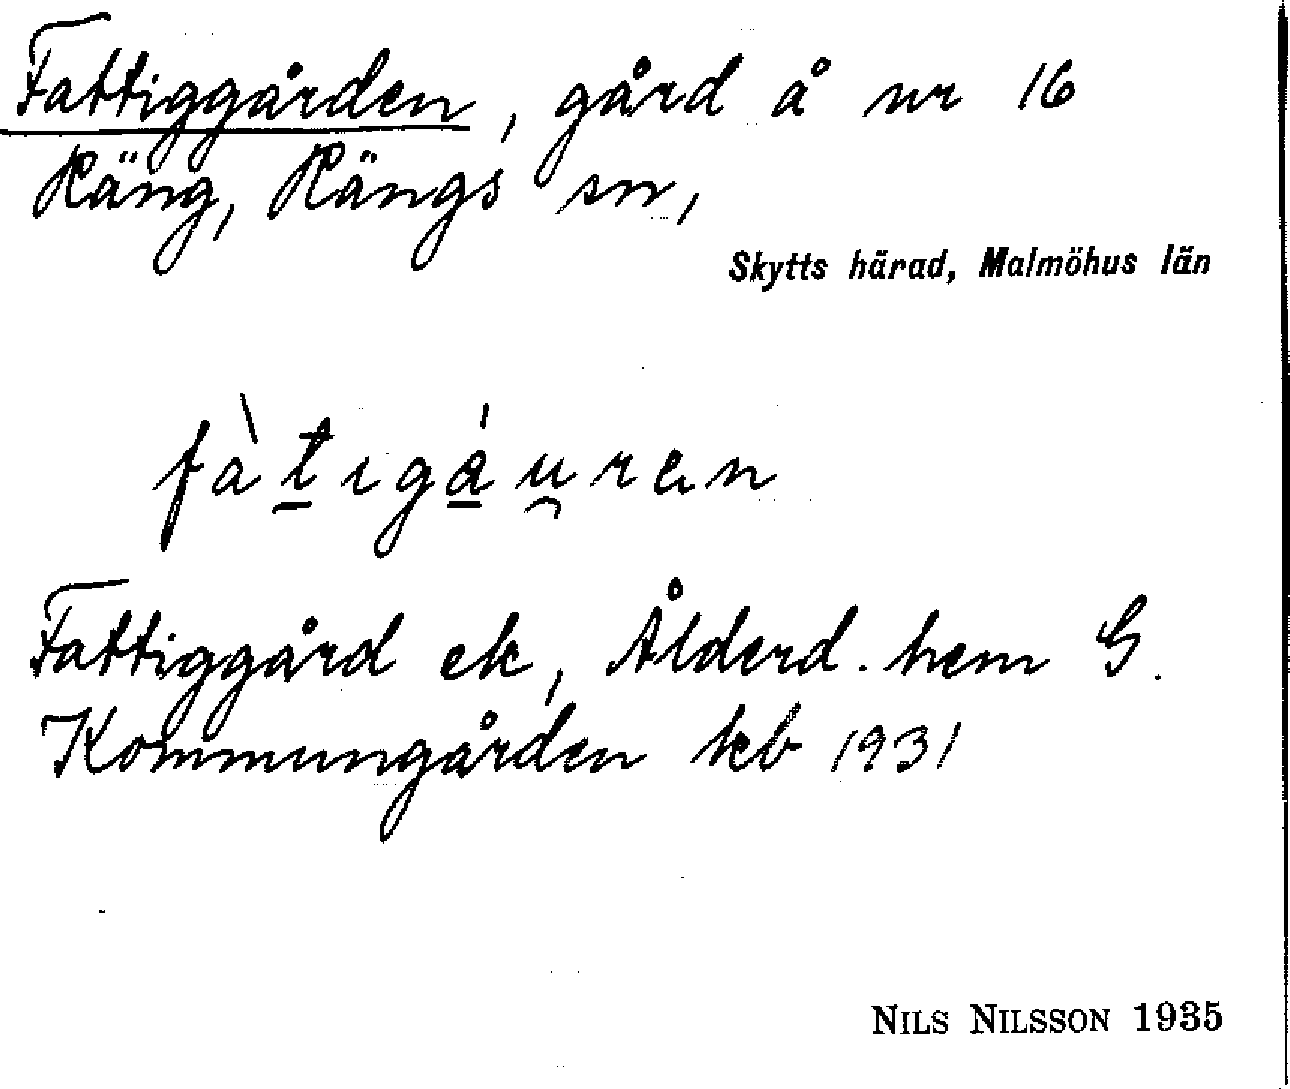 Fattiggården, gård å nr 16
Räng, Rängs sn,
Skytts härad, Malmöhus län
fàt̲ıgá̲u̯ren
Fattiggård ek, Ålderd. hem G.
Kommungården kb 1931
NILS NILSSON 1935